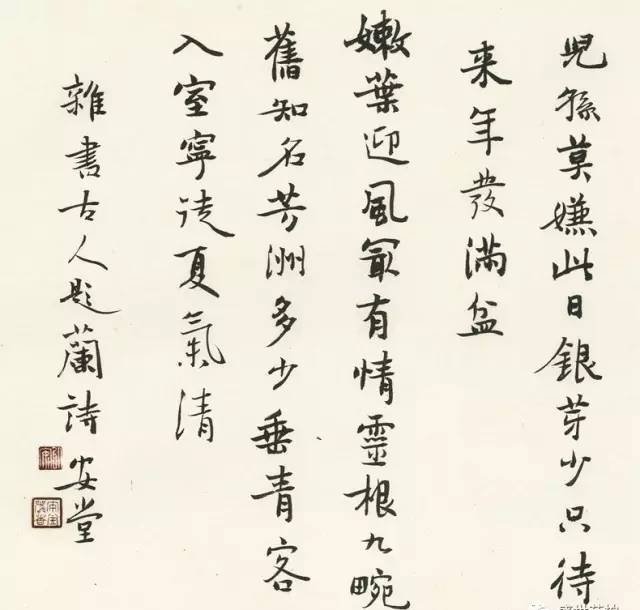 兒孫莫嫌此日銀芽少只待
来年發滿盆
嫩葉迎風冣有情靈根九畹
舊知名芳洲多少垂青客
入室寧徒夏氣清
雜書古人題蘭詩 安堂